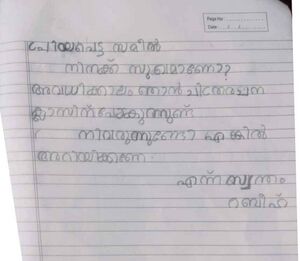 Page No:
Date: / /
പ്രിയപ്പെട്ട സമീൽ
നിനക്ക് സുഖമാണോ?
അവധിക്കാലം ഞാൻ ചിത്രരചന
ക്ലാസിന് പോകുന്നുണ്ട്
നിവരുന്നുണ്ടോ എങ്കിൽ
അറിയിക്കണേ.
എന്ന് സ്വന്തം
റബീഹ്